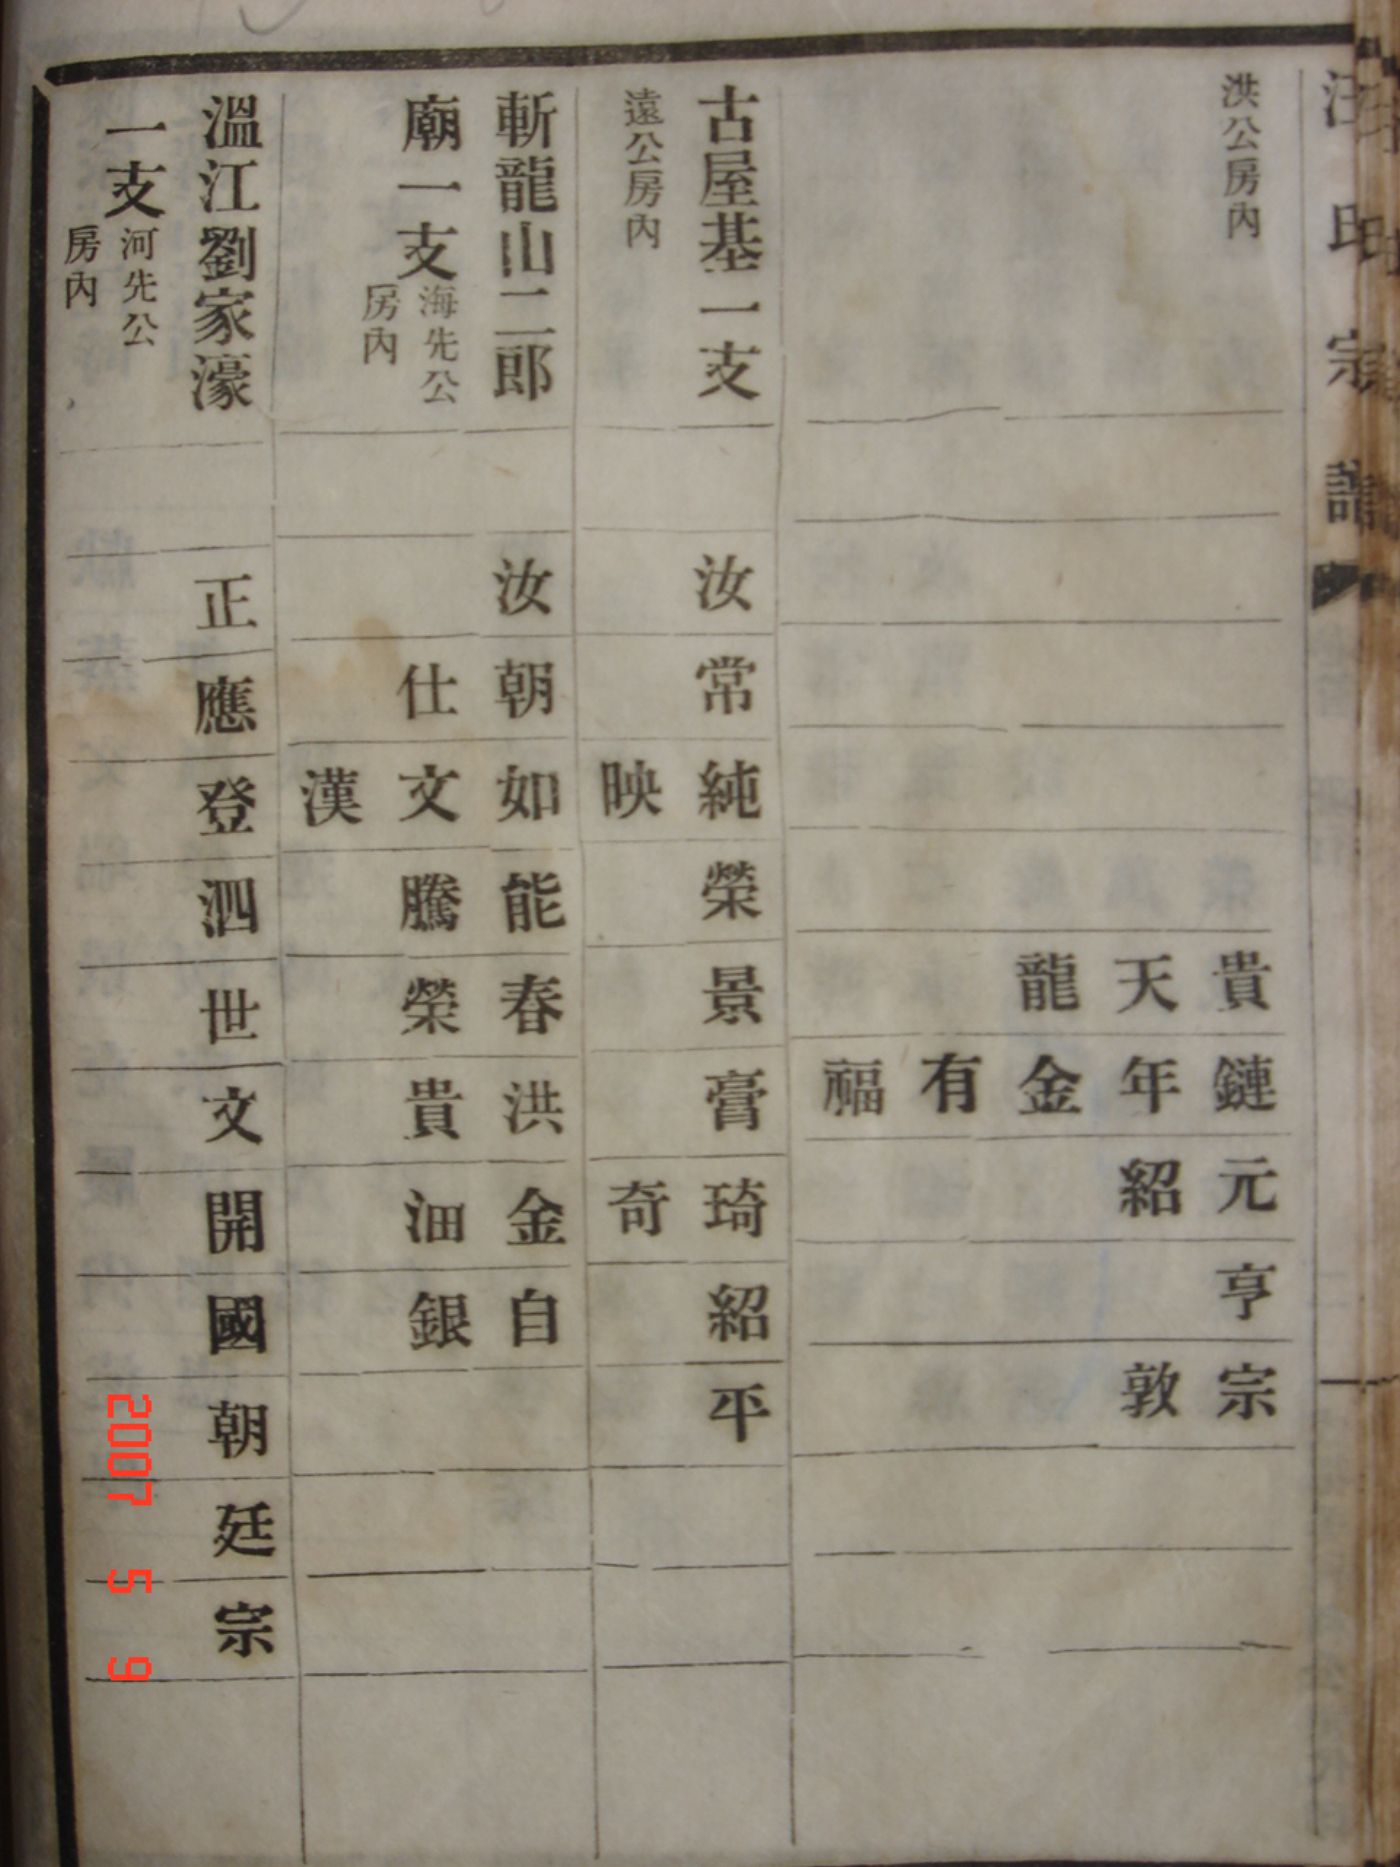 汪氏宗譜
洪公房內
貴鏈元亨宗
天年紹敦
龍金
有
福
古屋基一支
遠公房內
汝常純榮景膏琦紹平
映奇
斬龍山二郎
廟一支
海先公
房內
汝朝如能春洪金自
仕文騰榮貴沺銀
漢
溫江劉家濠
一支
河先公
房內
正應登泗世文開國朝廷宗
2007 5 9